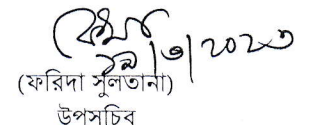 ১৯|৩|২০২৩
(ফরিদা সুলতানা)
উপসচিব